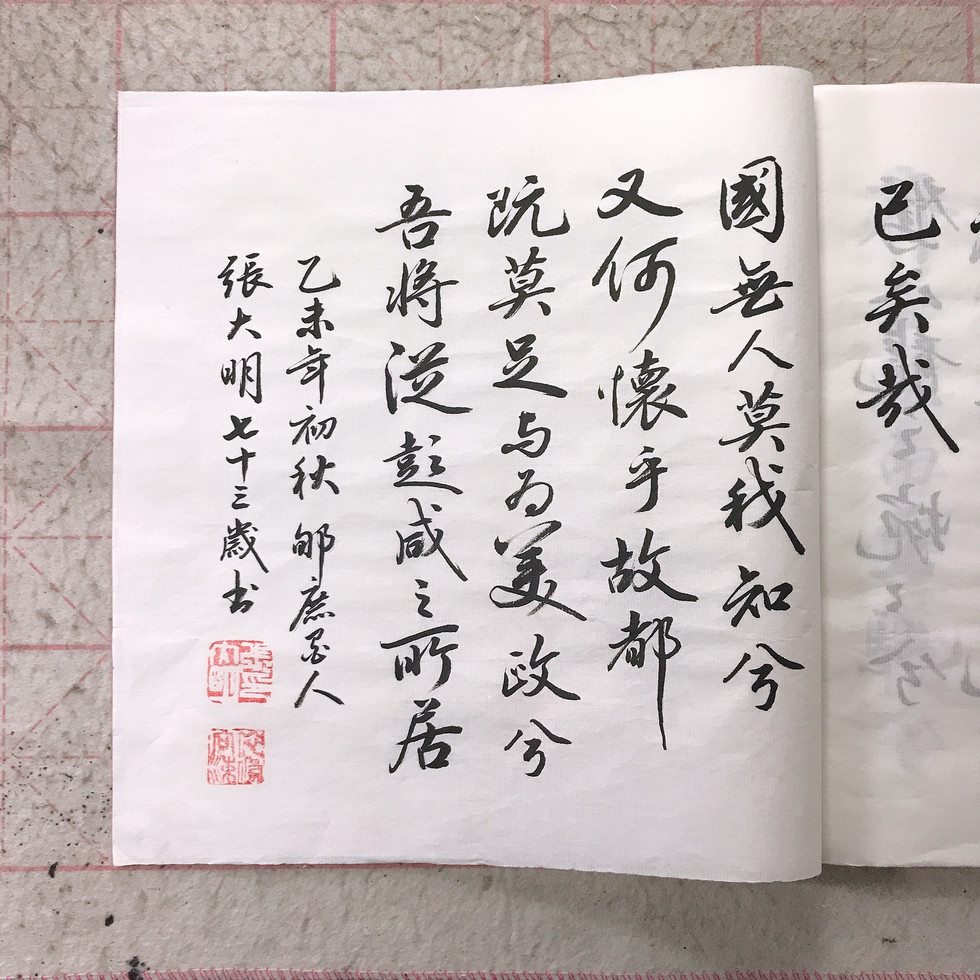 已矣哉
國無人莫我知兮
又何懷乎故都
既莫足与为美政兮
吾將從彭咸之所居
乙未年初秋
張大明七十三歲书